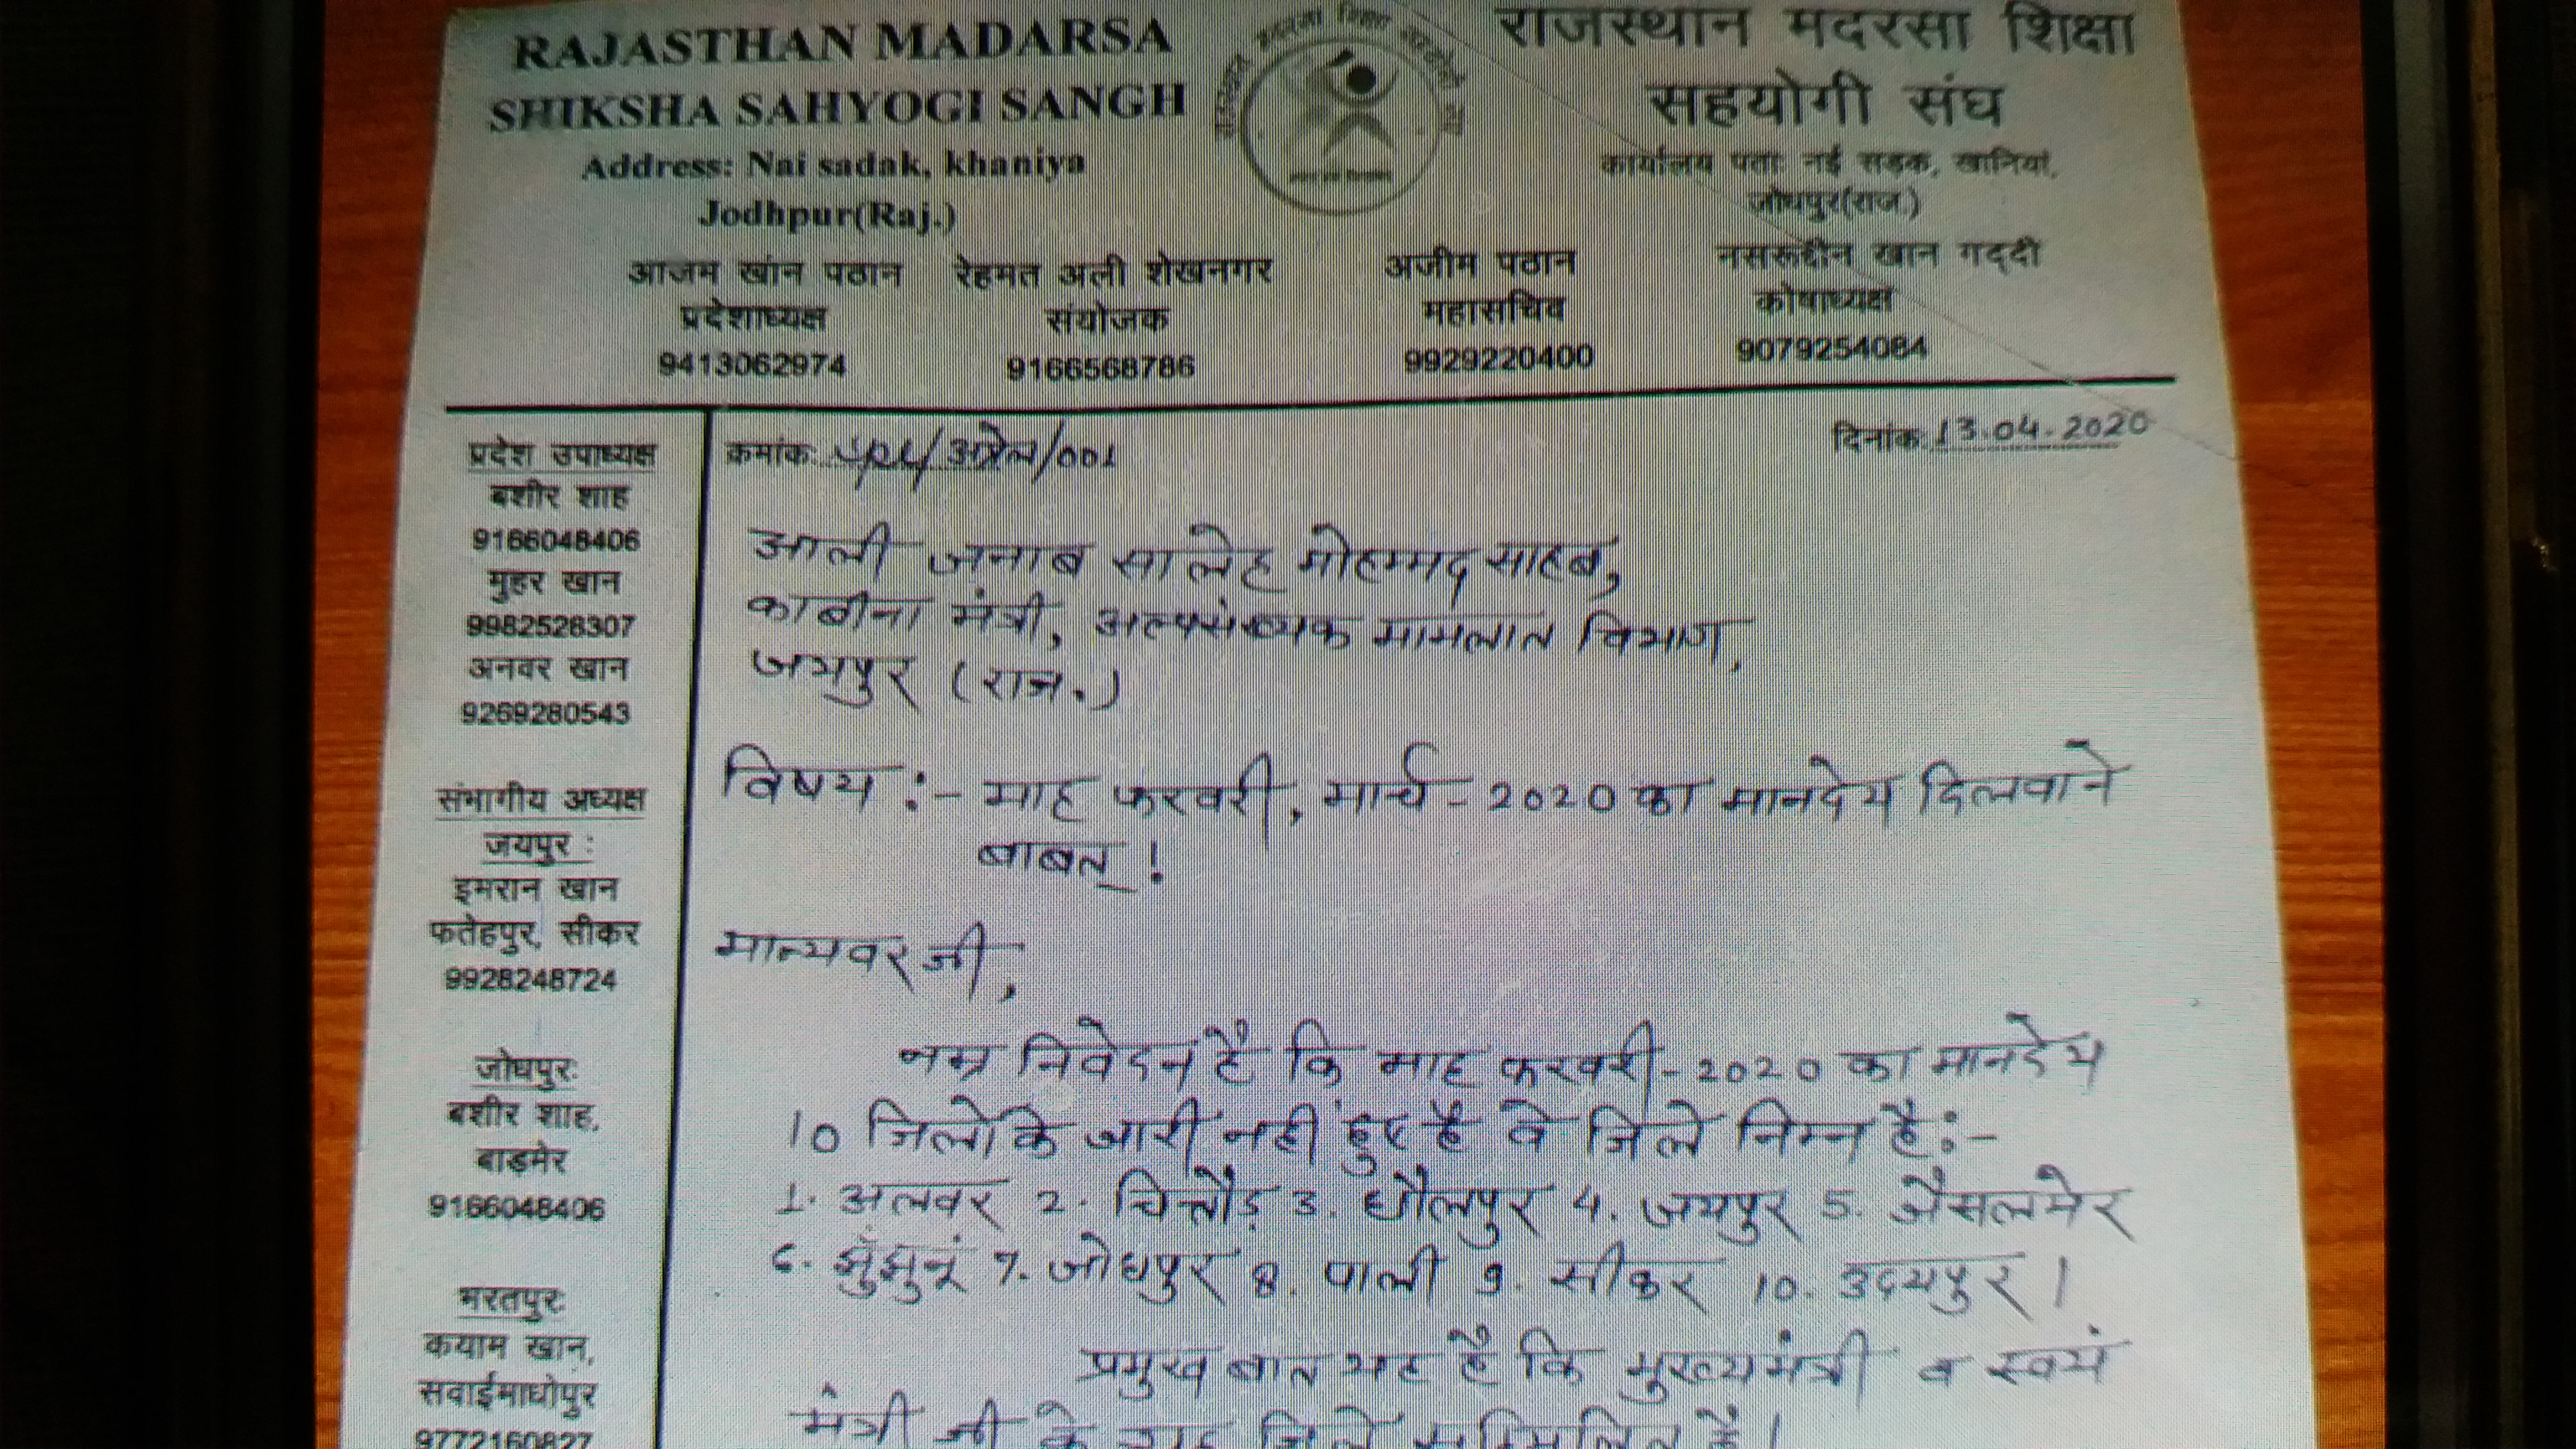 RAJASTHAN MADARSA
SHIKSHA SAHYOGI SANGH
Address: Nai sadak, khaniya
Jodhpur(Raj.)
राजस्थान मदरसा शिक्षा
सहयोगी संघ
कार्यालय पताः नई सड़क, खानियां,
जोधपुर(राज)
आजम खांन पठान
प्रदेशाध्यक्ष
9413062974
रेहमत अली शेखनगर
संयोजक
9166568786
अजीम पठान
महासचिव
9929220400
नसरूदीन खान गद्दी
कोषाध्यक्ष
9079254084
प्रदेश उपाध्यक्ष
बशीर शाह
9166048406
मुहर खान
9982528307
अनवर खान
9269280543
संभागीय अध्यक्ष
जयपुर :
इमरान खान
फतेहपुर, सीकर
9928248724
जोधपुरः
बशीर शाह,
बाड़मेर
9166048406
भरतपुरः
कयाम खान,
सवाईमाधोपुर
9772160827
क्रमांक:
दिनांक: 13.04.2020
आली जनाब सालेह मोहम्मद साहब,
काबीना मंत्री, अल्पसंख्यक मामलात विभाग,
जयपुर (राज.)
विषय :- माह फरवरी, मार्च - 2020 का मानदेय दिलवाने
बाबत !
मान्यवर जी,
नम्र निवेदन है कि माह फरवरी-2020 का मानदेय
10 जिलो के जारी नही हुए है वे जिले निम्न हैं:-
1. अलवर 2. चितौड़ 3. धौलपुर 4. जयपुर 5. जैसलमेर
6. झुंझुनूं 7. जोधपुर 8. पाली 9. सीकर 10. उदयपुर |
प्रमुख बात यह है कि मुख्यमंत्री व स्वयं
मंत्री जी के गृह जिले सम्मिलित हैं |